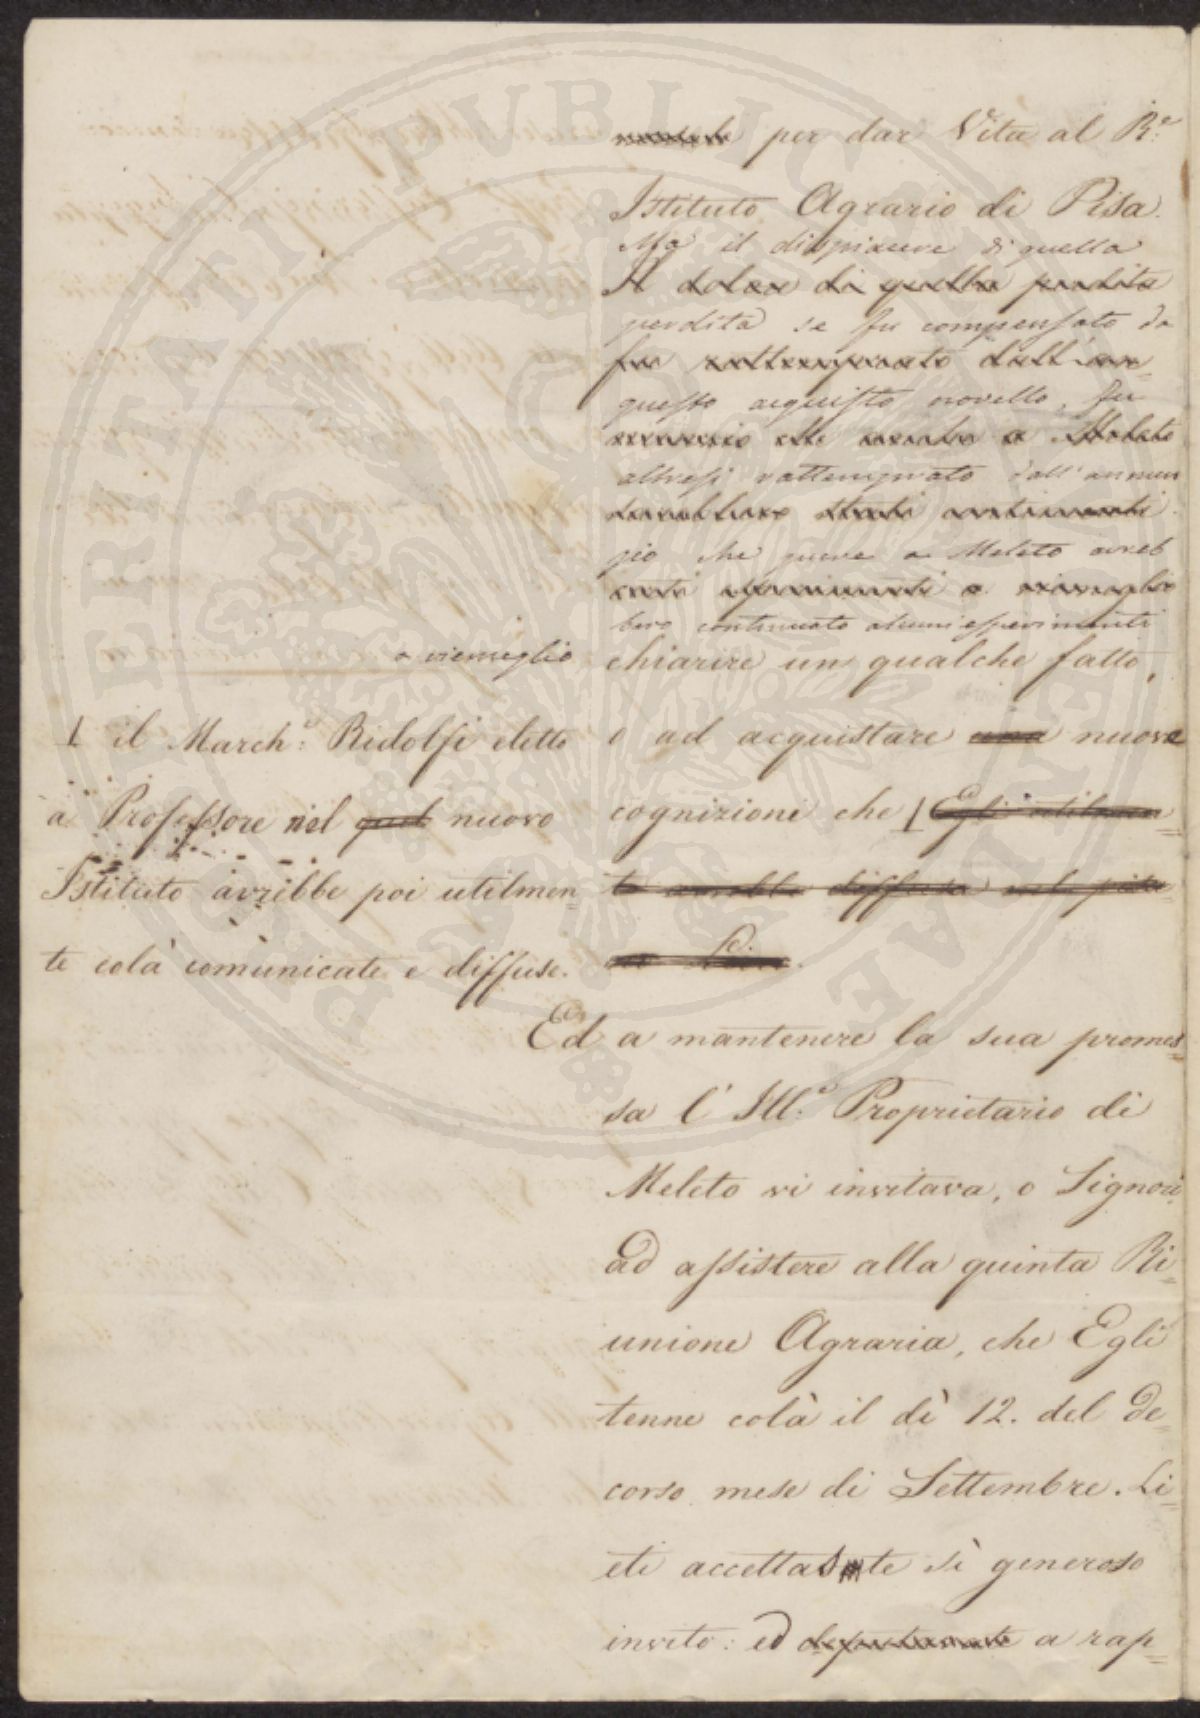 per dar Vita al R.º
Istituto Agrario di Pisa.
Ma il dispiacere di quella
Il dolor di quella perdita
perdita se fu compensato da
fu rattemprato dall'an=
questo acquisto novello, fu
nunzio che anche a Meleto
altresì rattemprato dall'annun
zio che pure a Meleto avreb
bero continuato alcuni esperimenti
a viemeglio chiarire un qualche fatto,
o ad acquistare una nuove
cognizioni che Egli utilmen=
te avrebbe diffuse
⊥ il March.e Ridolfi eletto
a Professore nel quel nuovo
Istituto avrebbe poi utilmen=
te colà comunicate e diffuse.
Ed a mantenere la sua promes=
sa l'Ill.º Proprietario di
Meleto vi invitava, o Signori,
ad assistere alla quinta Ri=
unione Agraria, che Egli
tenne colà il dì 12. del de=
corso mese di Settembre. Li=
eti accettaste sì generoso
invito: ed a rap=
PERITATI PUBLICAE